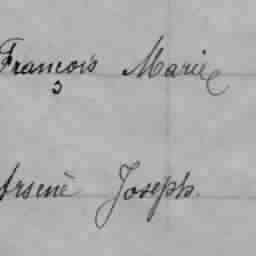 François Marie
Arsène Joseph.